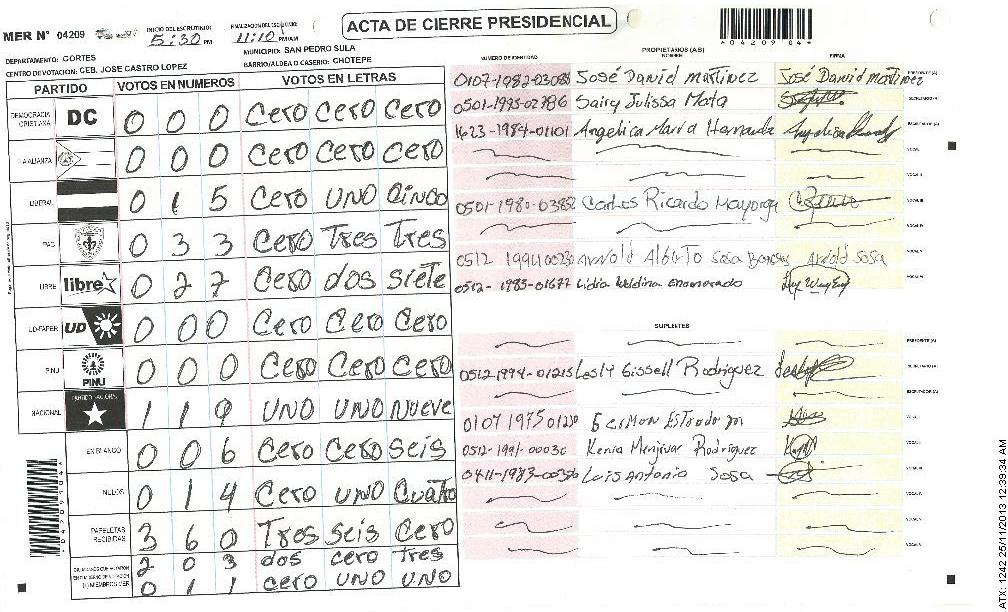 ACTA DE CIERRE PRESIDENCIAL
MER N° 04209
INICIO DEL ESCRUTINIO
5:30 PM
11:10 PM/AM
*04209 04*
DEPARTAMENTO: CORTES
MUNICIPIO: SAN PEDRO SULA
CENTRO DE VOTACION: CEB. JOSE CASTRO LOPEZ
BARRIO/ALDEA O CASERIO: CHOTEPE
PARTIDO VOTOS EN NUMEROS VOTOS EN LETRAS
DEMOCRACIA CRISTIANA DC 0 0 0 Cero cero cero
LA ALIANZA 0 0 0 Cero Cero Cero
LIBERAL 0 1 5 Cero UNO Cinco
PAC 0 3 3 Cero Tres Tres
LIBRE libre 0 2 7 Cero dos siete
UD-FAPER UD 0 0 0 Cero Cero Cero
PINU PINU 0 0 0 Cero Cero Cero
NACIONAL PARTIDO NACIONAL 1 1 9 UNO UNO Nueve
EN BLANCO 0 0 6 Cero Cero seis
NULOS 0 1 4 Cero UNO Cuatro
PAPELETAS RECIBIDAS 3 6 0 Tres seis Cero
2 0 3 dos cero Tres
0 1 1 cero UNO UNO
NUMERO DE IDENTIDAD
PROPIETARIOS (AS)
NOMBRE
FIRMA
José David Martinez José David martinez
PRESIDENTE (A)
0501-1995-02786 Sairy Julissa Mata
SECRETARIO (A)
1623-1984-01101 Angelica Maria
ESCRUTADOR (A)
VOCAL I
VOCAL II
0501-1980-03852 Carlos Ricardo Mayorga
VOCAL III
VOCAL IV
Sosa Arnold Sosa
VOCAL V
0512-1985-01677 Lidia Enamorado
VOCAL VI
SUPLENTES
PRESIDENTE (A)
0512-1994-01215 Lesly Gissell Rodriguez
SECRETARIO (A)
ESCRUTADOR (A)
German Estrada
VOCAL I
Kenia Menjivar Rodriguez
VOCAL II
Luis Antonio Sosa
VOCAL III
VOCAL IV
VOCAL V
VOCAL VI
ATX: 1242 25/11/2013 12:39:34 AM